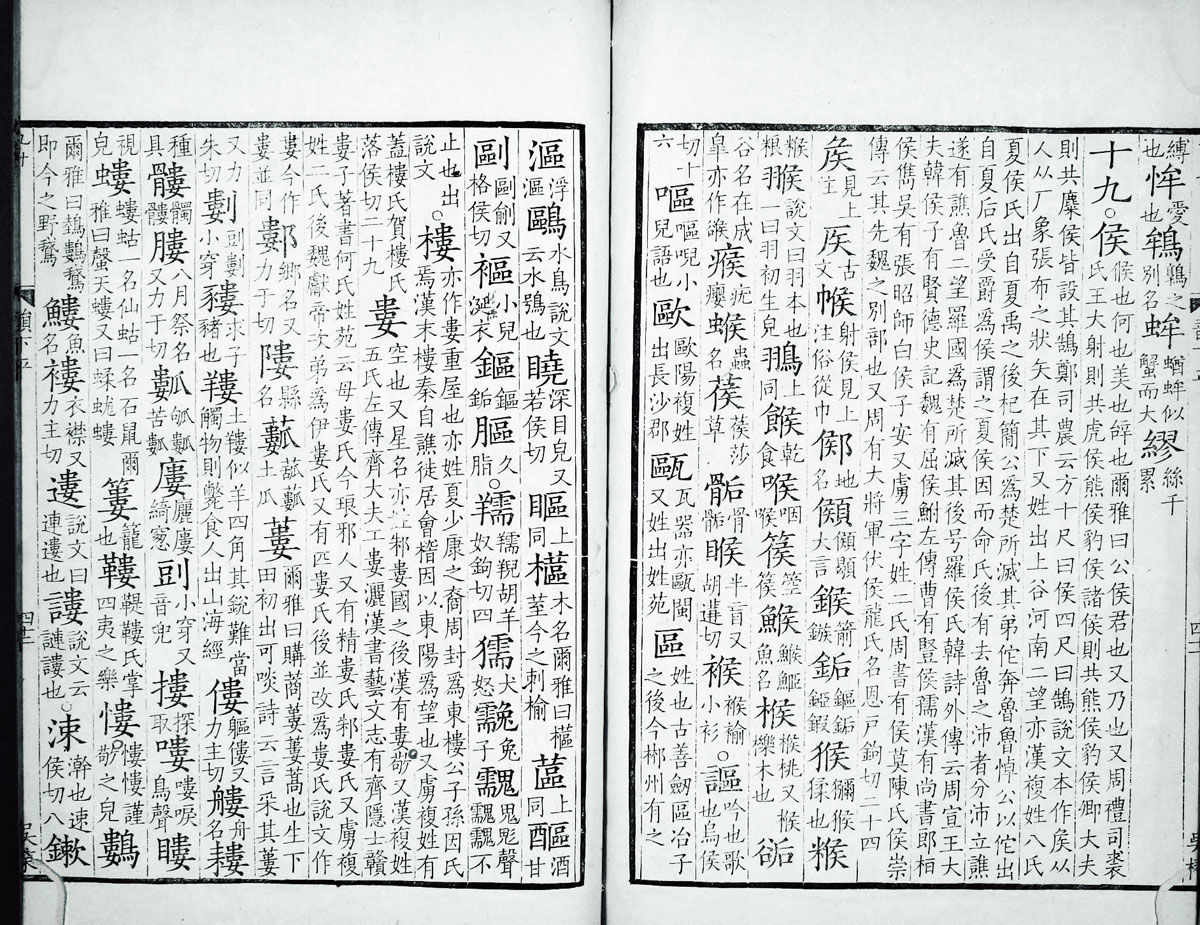 縛也恈愛也鴾鶉之別名蛑蝤蛑似蟹而大繆絲千累
十九○侯侯也何也美也辭也爾雅曰公侯君也又乃也又周禮司裘氏王大射則共虎侯熊侯豹侯諸侯則共熊侯豹侯卿大夫
則共麋侯皆設其鵠鄭司農云方十尺曰侯四尺曰鵠說文本作矦从人从厂象張布之狀矢在其下又姓出上谷河南二望亦漢複姓八氏
夏侯氏出自夏禹之後杞簡公爲楚所滅其弟佗奔魯魯悼公以佗出自夏后氏受爵爲侯謂之夏侯因而命氏後有去魯之沛者分沛立譙
遂有譙魯二望羅國爲楚所滅其後号羅侯氏韓詩外傳云周宣王大夫韓侯子有賢德史記魏有屈侯鮒左傳曹有豎侯獳漢有尚書郎桓
侯儁吳有張昭師白侯子安又虜三字姓二氏周書有侯莫陳氏侯崇傳云其先魏之別部也又周有大將軍伏侯龍氏名恩戶鉤切二十四
矦見上注𥎦古文帿射侯見上注俗從巾鄇地名顯大言鍭箭鏃銗鏂銗錏鍜猴獼猴猱也糇
糇糧翭說文曰羽本也一曰羽初生皃翵上同餱乾食喉咽喉篌箜篌鯸鯸魚名㮢㮢桃又㮢櫟木也𧮶
谷名在成皐亦作瘊疣瘊蟲名葔葔莎草骺骨骺睺半盲又胡遘切𧙺𧙺褕小衫○謳吟也歌也烏侯
切十六嘔嘔唲小兒語也歐歐陽複姓出長沙郡甌瓦器亦甌閩又姓出姓苑區姓也古善劒區冶子之後今郴州有之
漚浮漚鷗水鳥說文云水鴞也䁱深目皃又若侯切瞘上同櫙木名爾雅曰櫙荎今之刺榆蓲上同醧甘酒
剾剾剜又格侯切褔小兒涎衣鏂鏂銗膒久脂○羺羺羬胡羊奴鉤切四獳犬怒䨲兔子䰭䰭䰭不
止也出說文○樓亦作婁重屋也亦姓夏少康之裔周封爲東樓公子孫因氏焉漢末樓秦自譙徙居會稽因以東陽爲望也又虜複姓有
蓋樓氏賀樓氏落侯切二十九婁空也又星名亦姓邾婁國之後漢有婁敬又漢複姓五氏左傳齊大夫工婁灑漢書藝文志有齊隱士贛
婁子著書何氏姓苑云母婁氏今琅邪人又有精婁氏邾婁氏又虜複姓二氏後魏獻帝次弟爲伊婁氏又有匹婁氏後並改爲婁氏說文作
婁今作婁並同鄻鄉名又縣名力于切㔷名蔞土瓜蔞爾雅曰購蔏蔞蔞蒿也生下田初出可啖詩云言采其蔞
又力朱切剅剅小穿䝏求子豬也䍣土䍣似羊四角其銳難當觸物則斃食人出山海經僂軀僂又力主切艛舟名耬
種具髏髑髏膢八月祭名又力于切瓠𤬏苦廔麗廔綺窻剅小穿又音兜摟探取嘍嘍唳鳥聲瞜
視皃螻螻蛄一名仙蛄一名石鼠爾雅曰螜天螻又曰蝚蛖螻簍籠也鞻鞮鞻氏掌四夷之樂慺慺慺謹敬之皃鷜
爾雅曰鵱鷜鵝即今之野鵝䱾魚名褸衣襟又力主切遱說文曰連遱也謱說文云謰謱也○涑澣也速侯切八𣤶